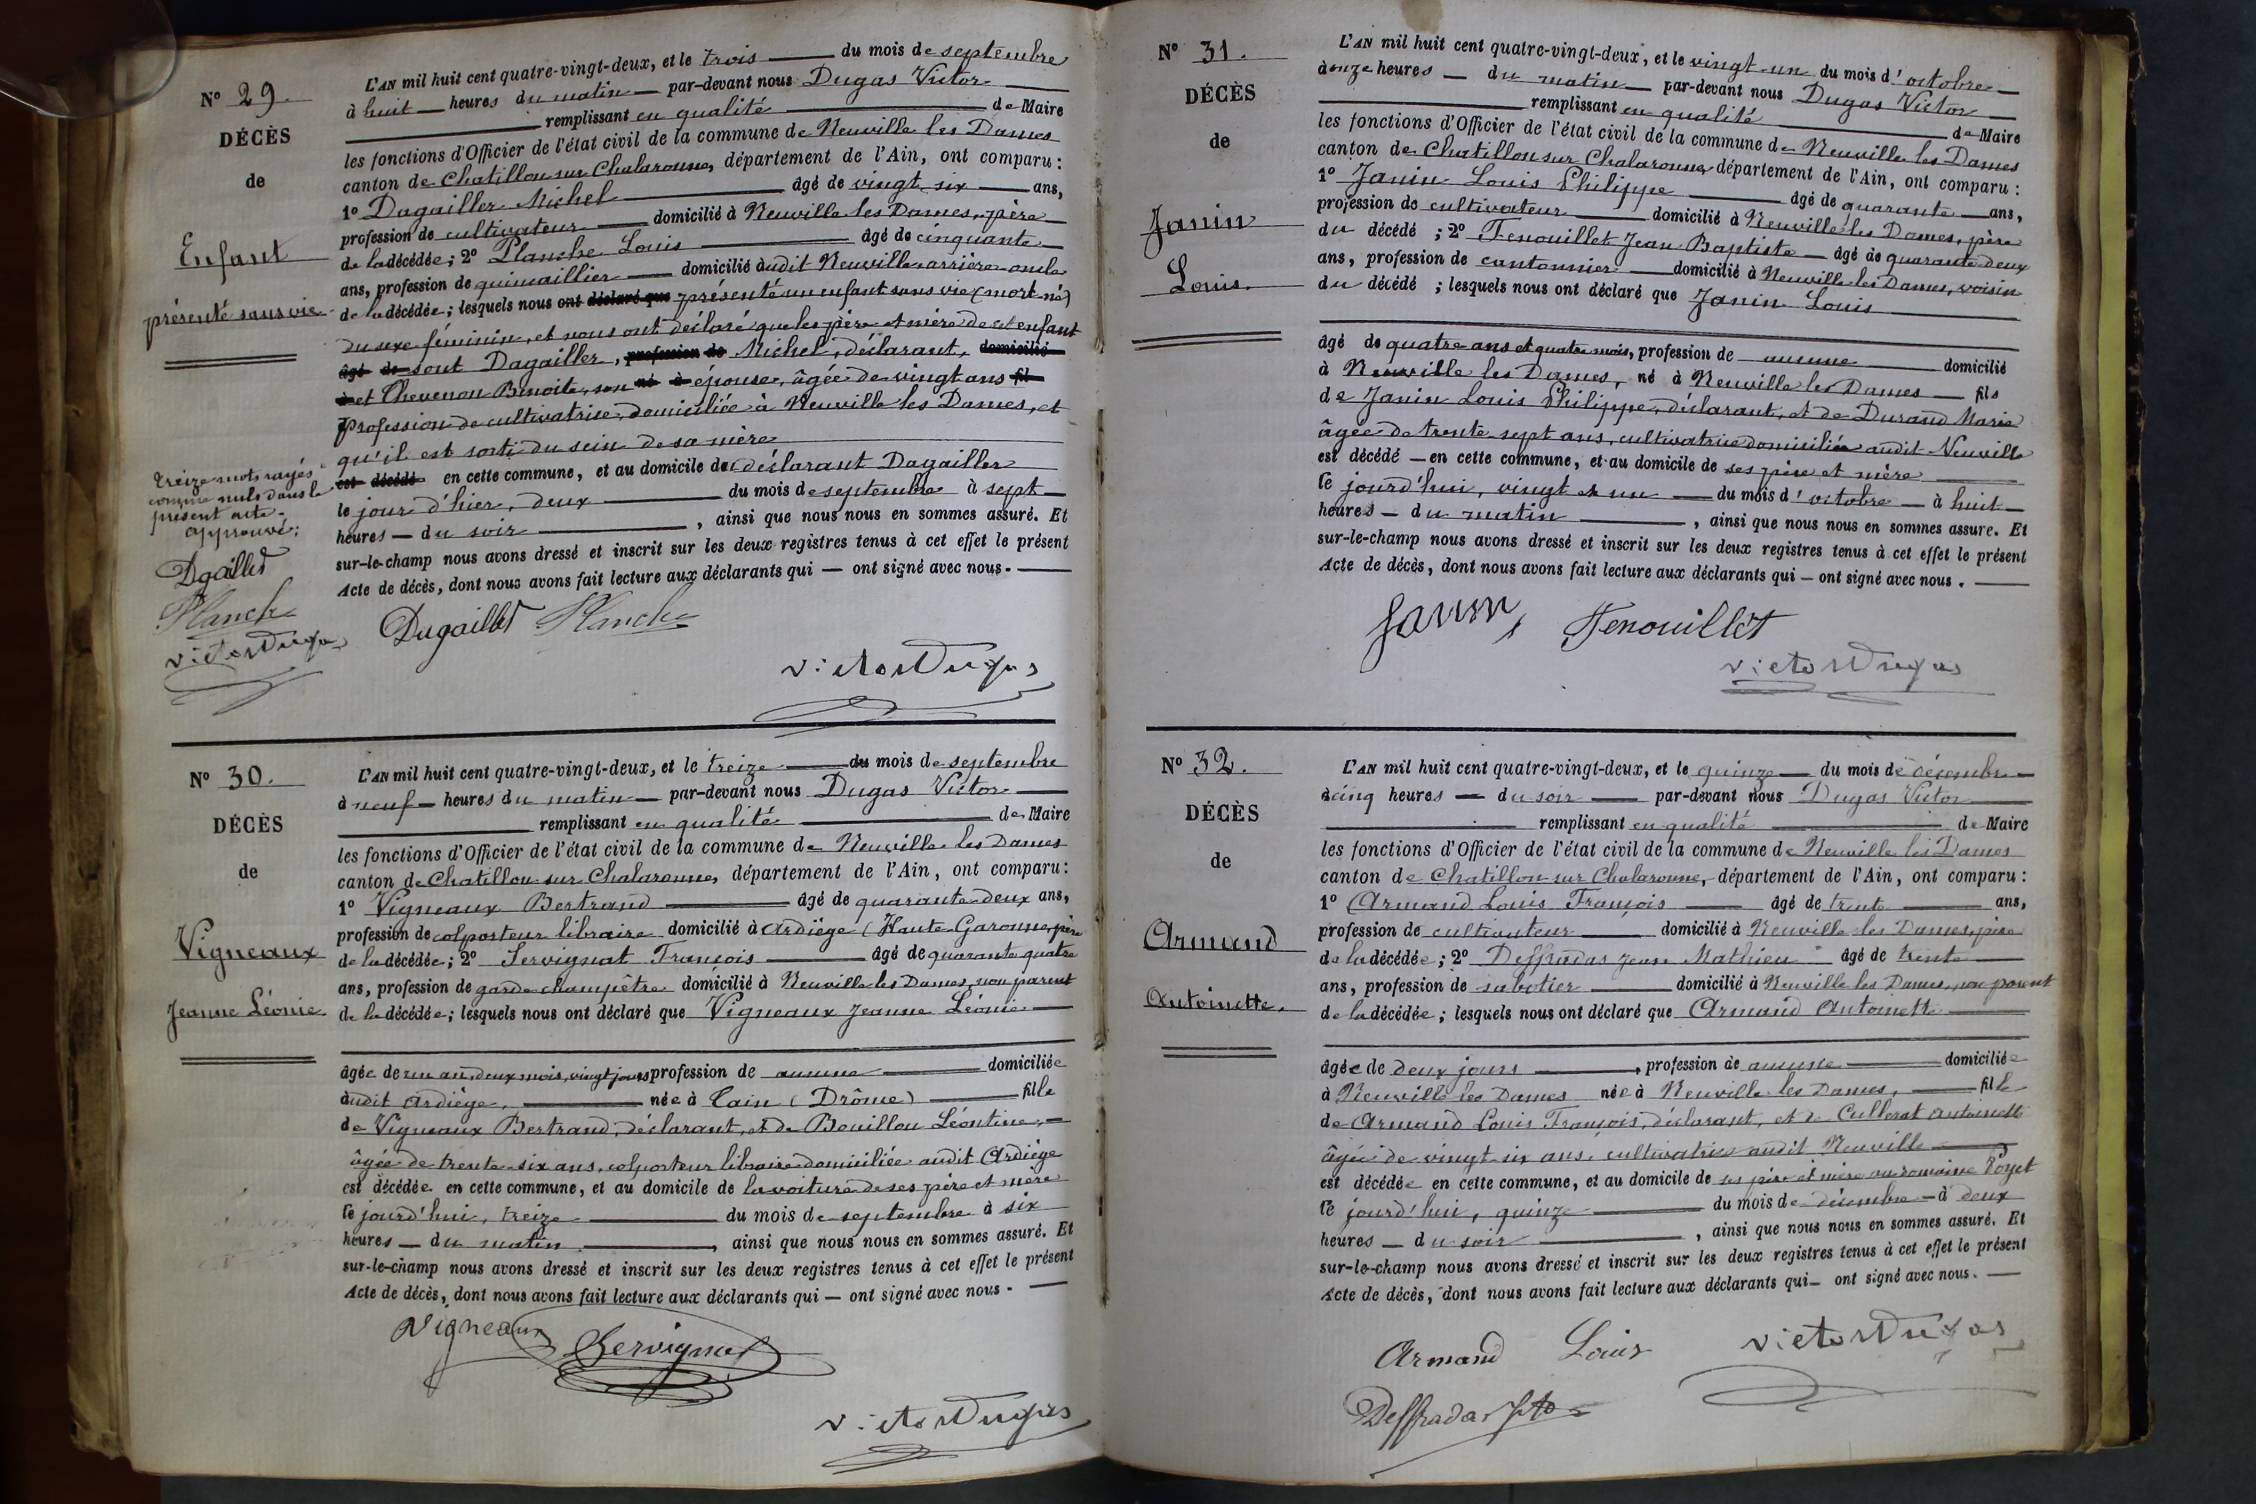 N° 29.
DÉCÈS
de
Enfant
présenté sans vie
L'AN mil huit cent quatre-vingt-deux, et le trois du mois de septembre
à huit heures du matin par-devant nous Dugas Victor
remplissant en qualité de Maire
les fonctions d'Officier de l'état civil de la commune de Neuville les Dames
canton de Chatillon sur Chalaronne, département de l'Ain, ont comparu :
1° Dagailler Michel âgé de vingt six ans,
profession de cultivateur domicilié à Neuville les Dames, père
de la décédée ; 2° Planche Louis âgé de cinquante
ans, profession de quincaillier domicilié audit Neuville arrière oncle
de la décédée ; lesquels nous ont déclaré que présenté un enfant sans vie (mort-né)
du sexe féminin, et nous ont déclaré que les père et mère de cet enfant
âgé de sont Dagailler, profession de Michel, déclarant, domicilié
à et Chevenon Benoite, son né à épouse, âgée de vingt ans fil
profession de cultivatrice, domiciliée à Neuville les Dames, et
qu'il est sorti du sein de sa mère
est décédé en cette commune, et au domicile du déclarant Dagailler
le jour d'hier, deux du mois de septembre à sept
heures du soir, ainsi que nous nous en sommes assuré. Et
sur-le-champ nous avons dressé et inscrit sur les deux registres tenus à cet effet le présent
Acte de décès, dont nous avons fait lecture aux déclarants qui — ont signé avec nous.
treize mots rayés
comme nuls dans le
présent acte.
approuvé :
Dgailler
Planche
victor Dugas
Dugailler Planche
victor Dugas
N° 30.
DÉCÈS
de
Vigneaux
Jeanne Léonie
L'AN mil huit cent quatre-vingt-deux, et le treize du mois de septembre
à neuf heures du matin par-devant nous Dugas Victor
remplissant en qualité de Maire
les fonctions d'Officier de l'état civil de la commune de Neuville les Dames
canton de Chatillon sur Chalaronne, département de l'Ain, ont comparu :
1° Vigneaux Bertrand âgé de quarante deux ans,
profession de colporteur libraire domicilié à Ardiège (Haute Garonne, père
de la décédée ; 2° Servignat François âgé de quarante quatre
ans, profession de garde champêtre domicilié à Neuville les Dames, non parent
de la décédée ; lesquels nous ont déclaré que Vigneaux Jeanne Léonie
âgée de un an, deux mois, vingt jours profession de aucune domiciliée
audit Ardiège, née à Tain (Drôme) fille
de Vigneaux Bertrand, déclarant, et de Bouillon Léontine,
âgée de trente-six ans, colporteur libraire domiciliée audit Ardiège
est décédée en cette commune, et au domicile de la voiture de ses père et mère
le jourd'hui, treize du mois de septembre à six
heures du matin, ainsi que nous nous en sommes assuré. Et
sur-le-champ nous avons dressé et inscrit sur les deux registres tenus à cet effet le présent
Acte de décès, dont nous avons fait lecture aux déclarants qui — ont signé avec nous.
Vigneaux
Servignat
victor Dugas
N° 31.
DÉCÈS
de
Janin
Louis.
L'AN mil huit cent quatre-vingt-deux, et le vingt-un du mois d'octobre
à onze heures du matin par-devant nous Dugas Victor
remplissant en qualité de Maire
les fonctions d'Officier de l'état civil de la commune de Neuville les Dames
canton de Chatillon sur Chalaronne, département de l'Ain, ont comparu :
1° Janin Louis Philippe âgé de quarante ans,
profession de cultivateur domicilié à Neuville les Dames, père
du décédé ; 2° Fenouillet Jean Baptiste âgé de quarante-deux
ans, profession de cantonnier domicilié à Neuville les Dames, voisin
du décédé ; lesquels nous ont déclaré que Janin Louis
âgé de quatre ans et quatre mois, profession de aucune domicilié
à Neuville les Dames, né à Neuville les Dames fils
de Janin Louis Philippe, déclarant, et de Durand Marie
âgée de trente-sept ans, cultivatrice domiciliée audit Neuville
est décédé en cette commune, et au domicile de ses père et mère
le jourd'hui, vingt et un du mois d'octobre à huit
heures du matin, ainsi que nous nous en sommes assuré. Et
sur-le-champ nous avons dressé et inscrit sur les deux registres tenus à cet effet le présent
Acte de décès, dont nous avons fait lecture aux déclarants qui — ont signé avec nous.
Janin Fenouillet
victor Dugas
N° 32.
DÉCÈS
de
Armand
Antoinette.
L'AN mil huit cent quatre-vingt-deux, et le quinze du mois de décembre
à cinq heures du soir par-devant nous Dugas Victor
remplissant en qualité de Maire
les fonctions d'Officier de l'état civil de la commune de Neuville les Dames
canton de Chatillon sur Chalaronne, département de l'Ain, ont comparu :
1° Armand Louis François âgé de trente ans,
profession de cultivateur domicilié à Neuville les Dames, père
de la décédée ; 2° Deffradas Jean Mathieu âgé de trente
ans, profession de sabotier domicilié à Neuville les Dames, non parent
de la décédée ; lesquels nous ont déclaré que Armand Antoinette
âgée de deux jours, profession de aucune domiciliée
à Neuville les Dames née à Neuville les Dames, fille
de Armand Louis François, déclarant, et de Cullerat Antoinette
âgée de vingt six ans, cultivatrice audit Neuville
est décédée en cette commune, et au domicile de ses père et mère au domaine Poyet
le jourd'hui, quinze du mois de décembre à deux
heures du soir, ainsi que nous nous en sommes assuré. Et
sur-le-champ nous avons dressé et inscrit sur les deux registres tenus à cet effet le présent
Acte de décès, dont nous avons fait lecture aux déclarants qui — ont signé avec nous.
Armand Louis victor Dugas
Deffradas